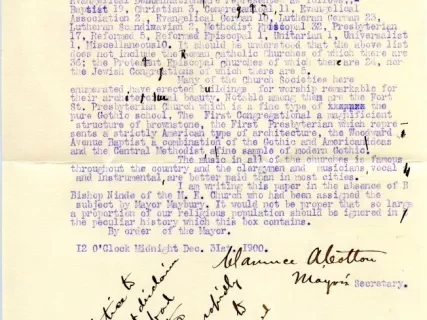 Evangelical Denominations are represented as follows,-
Baptist 19, Christian 3, Congregational 11, Evangelical
Association 2, Evangelical German 10, Lutheran German 23,
Lutheran Scandinavian 2, Methodist Episcopal 32, Presbyterian
17, Reformed 3, Reformed Episcopal 1, Unitarian 1, Universalist
1, Miscellaneous 10. It should be understood that the above list
does not include the Roman Catholic Churches of which there are
36; the Protestant Episcopal churches of which there are 24, nor
the Jewish Congregations of which there are 5.
Many of the Church Societies here
enumerated have erected buildings for worship remarkable for
their architectural beauty. Notable among them are the Fort
St. Presbyterian Church which is a fine type of the
pure Gothic school. The First Congregational a magnificent
structure of brownstone, the First Presbyterian which repre
sents a strictly American type of architecture, the Woodward
Avenue Baptist a combination of the Gothic and American ideas
and the Central Methodist a fine sample of modern Gothic.
The music in all of the churches is famous
throughout the country and the clergymen and musicians, vocal
and instrumental, are better paid than in most cities.
I am writing this paper in the absence of B
Bishop Ninde of the M. E. Church who had been assigned the
subject by Mayor Maybury. It would not be proper that so large
a proportion of our religious population should be ignored in
the peculiar history which this box contains.
By order of the Mayor.
12 O'Clock Midnight Dec. 31st. 1900.
Clarence A Cotton
Mayor's Secretary.
to
disclaim
to